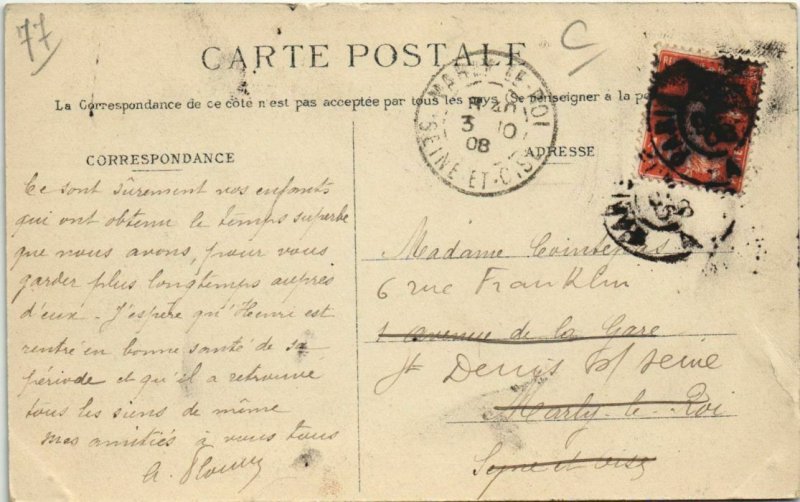 77
C
CARTE POSTALE
La Correspondance de ce côté n'est pas acceptée par tous les pays Se renseigner à la
MARLY-LE-ROI
3 10
08
SEINE-ET-OISE
CORRESPONDANCE
ADRESSE
Ce sont sûrement nos enfants
qui ont obtenu le temps superbe
que nous avons, pour vous
garder plus longtemps auprès
d'eux - J'espère qu'Henri est
rentré en bonne santé de sa
période et qu'il a retrouvé
tous les siens de même
Mes amitiés à vous tous
A.
Madame
6 rue Franklin
1 avenue de la Gare
St Denis s/ seine
Marly-le-Roi
Seine et Oise